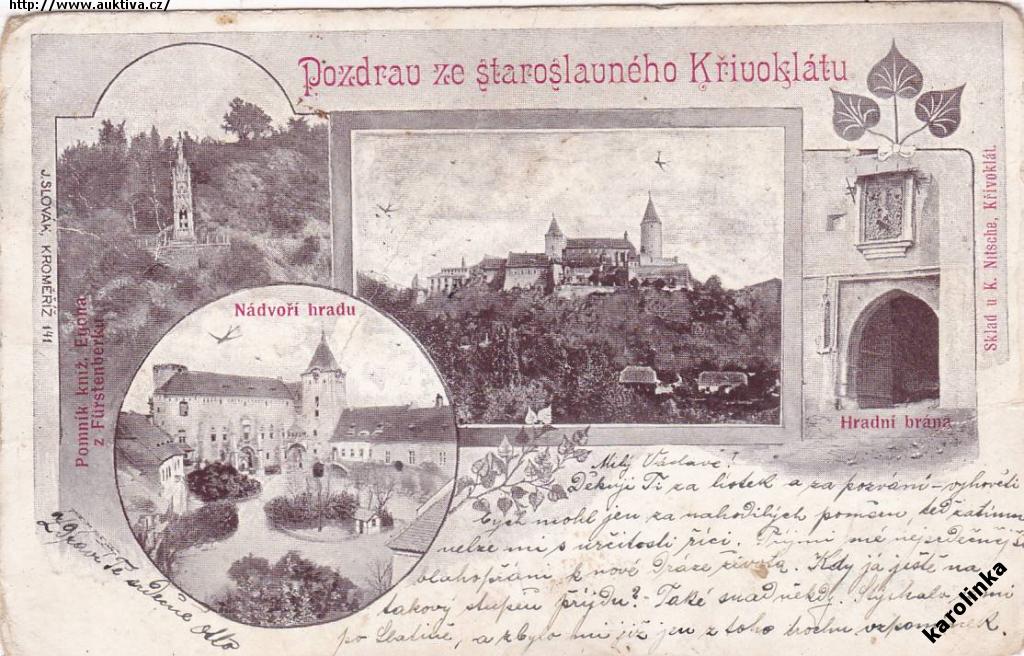 http://www.auktiva.cz/
Pozdrav ze staroslavného Křivoklátu
J. SLOVÁK, KROMĚŘÍŽ 141
Pomník kníž. Egona
z Fürstenberku
Nádvoří hradu
Hradní brána
Sklad u K. Nitsche, Křivoklát.
Milý Václave!
Děkuji Ti za lístek a za pozvání - vyhověti
bych mohl jen za nahodilých poměrů, teď zatím
nelze mi s určitostí říci. Přijmi mé nejsrdečnější
blahopřání k nové dráze života. Kdy já ještě na
takový stupeň přijdu? - Také snad někdy. Stýskalo mi
po Slatině, a zbylo mi již jen z toho trochu vzpomínek.
Zdraví Tě srdečně Otto
karolinka